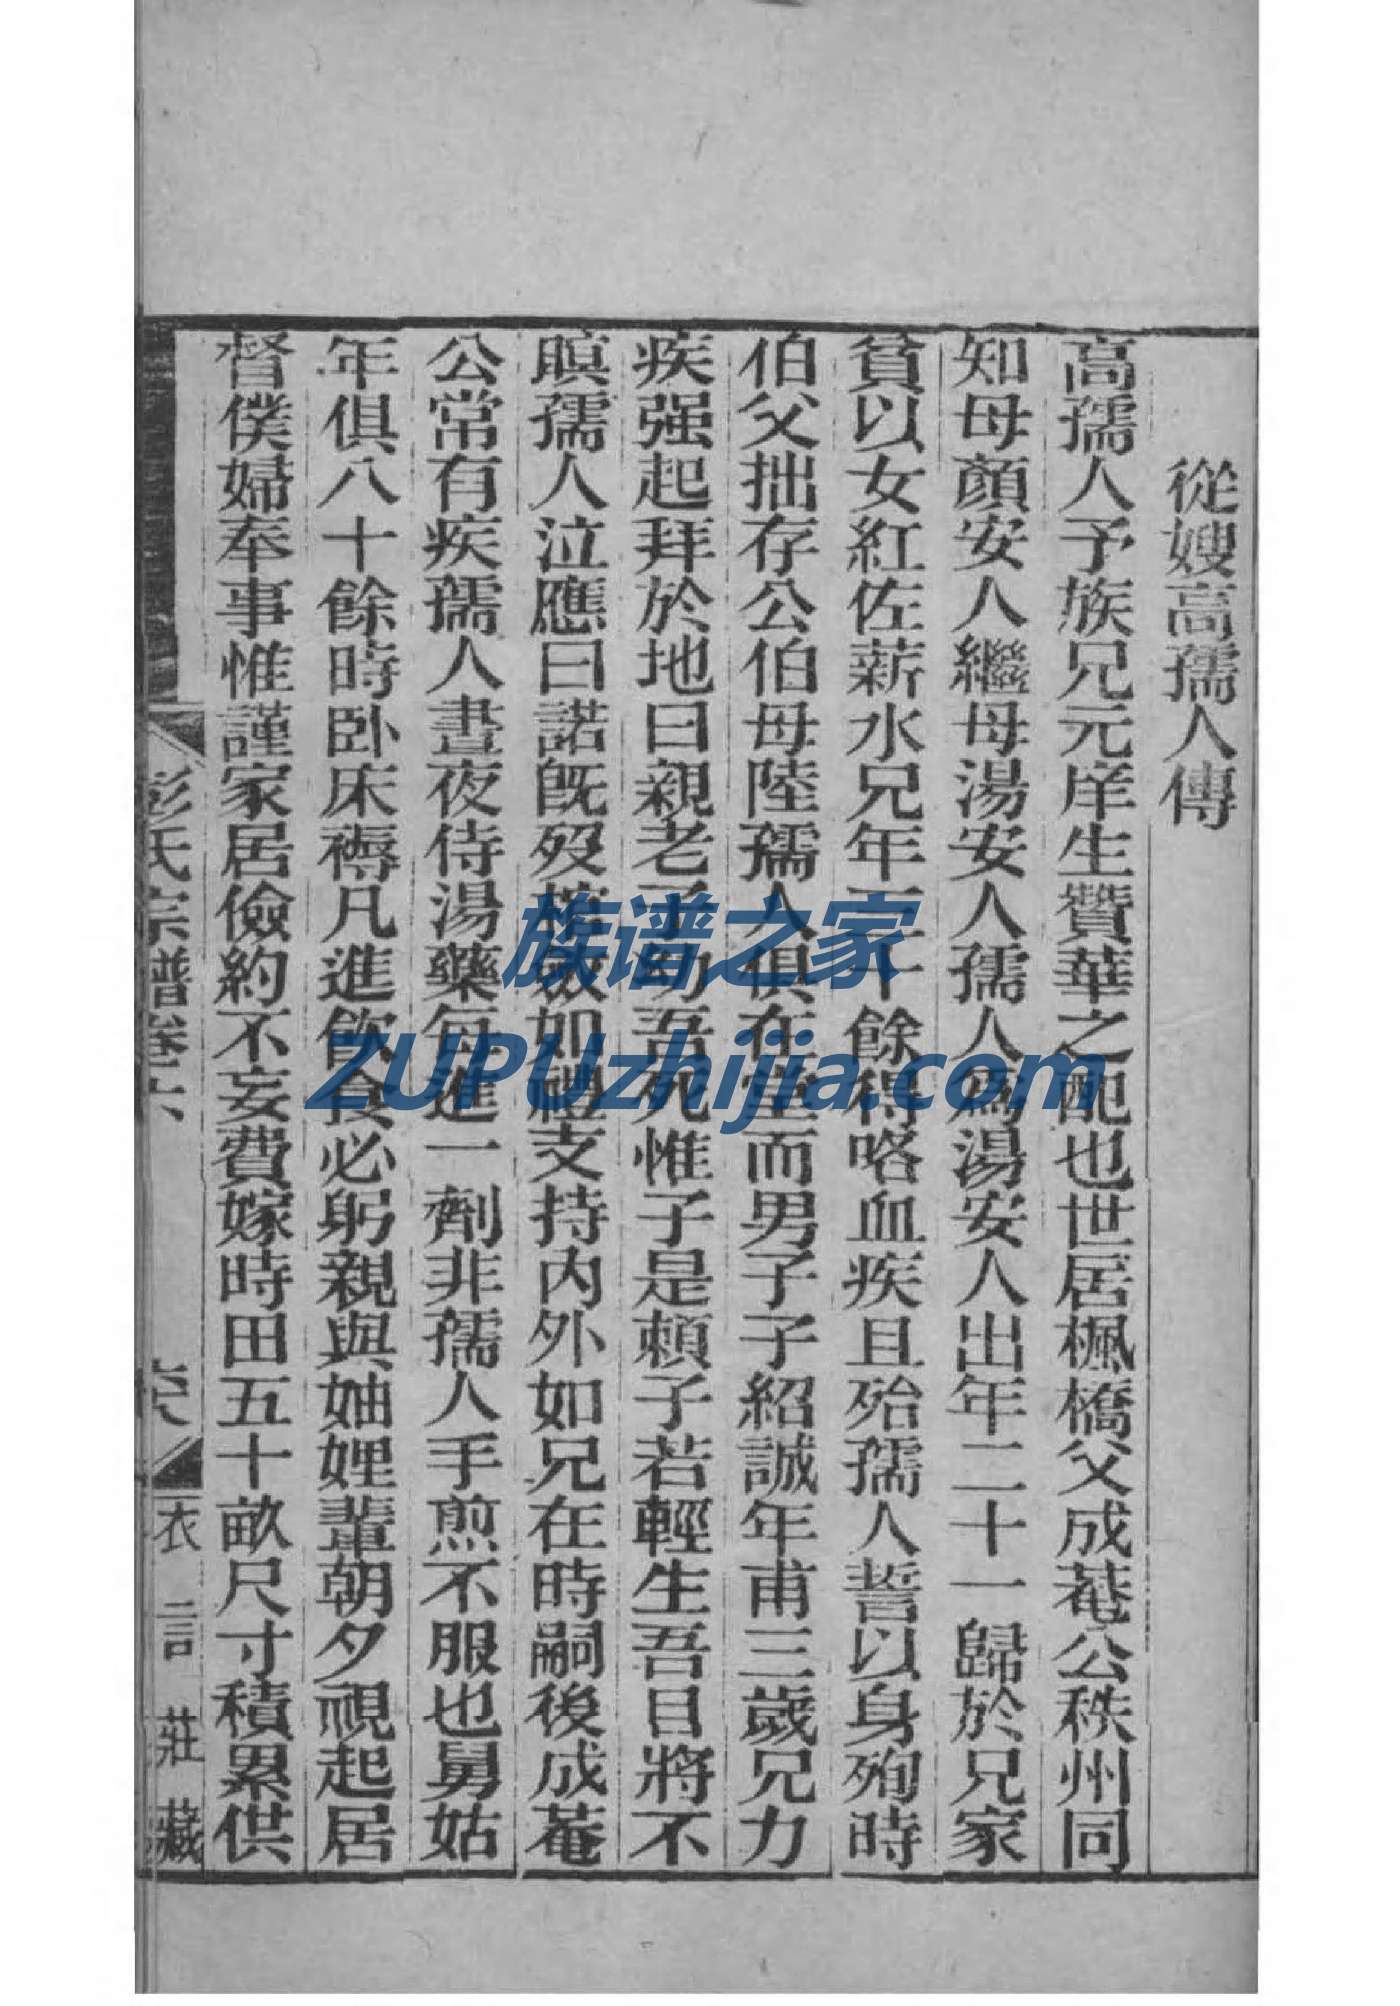 從嫂高孺人傳
高孺人予族兄元庠生贊華之配也世居楓橋父成菴公秩州同
知母顏安人繼母湯安人孺人為湯安人出年二十一歸於兄家
貧以女紅佐薪水兄年三十餘得咯血疾且殆孺人誓以身殉時
伯父拙存公伯母陸孺人俱在堂而男子子紹誠年甫三歲兄力
疾强起拜於地曰親老子幼吾死惟子是賴子若輕生吾目將不
瞑孺人泣應曰諾旣歿棺斂如禮支持內外如兄在時嗣後成菴
公常有疾孺人晝夜侍湯藥每進一劑非孺人手煎不服也舅姑
年俱八十餘時卧床褥凡進飲食必躬親與妯娌輩朝夕視起居
督僕婦奉事惟謹家居儉約不妄費嫁時田五十畝尺寸積累供
彭氏宗譜卷六
衣言莊藏
族谱之家
ZUPUzhijia.com